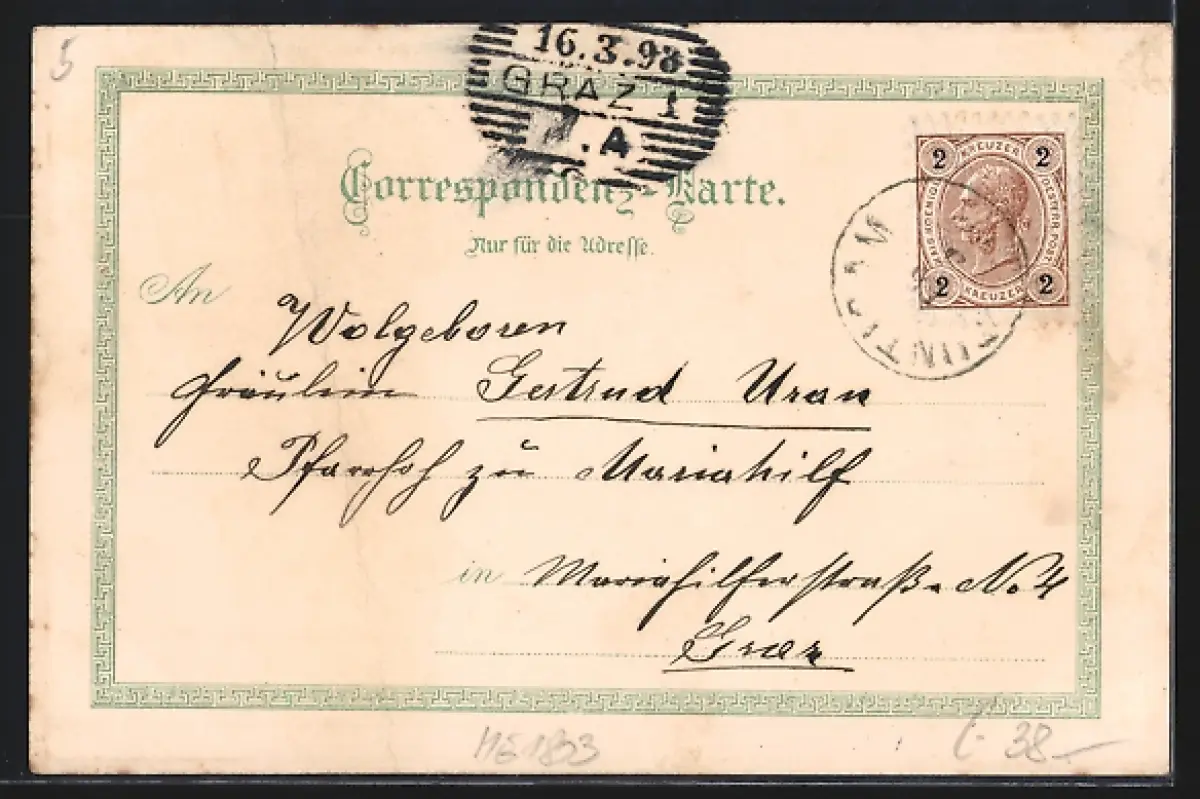 5
16.3.98
GRAZ 1
.A
Correspondenz-Karte.
Nur für die Adresse.
2 KREUZER 2
KAIS. KOENIGL. OESTERR. POST
2 KREUZER 2
PUNTIGAM
An
Wolgeboren
Fräulein Gertrud Uran
Pfarrhof zu Mariahilf
in Mariahilferstraße No 4
Graz
38-